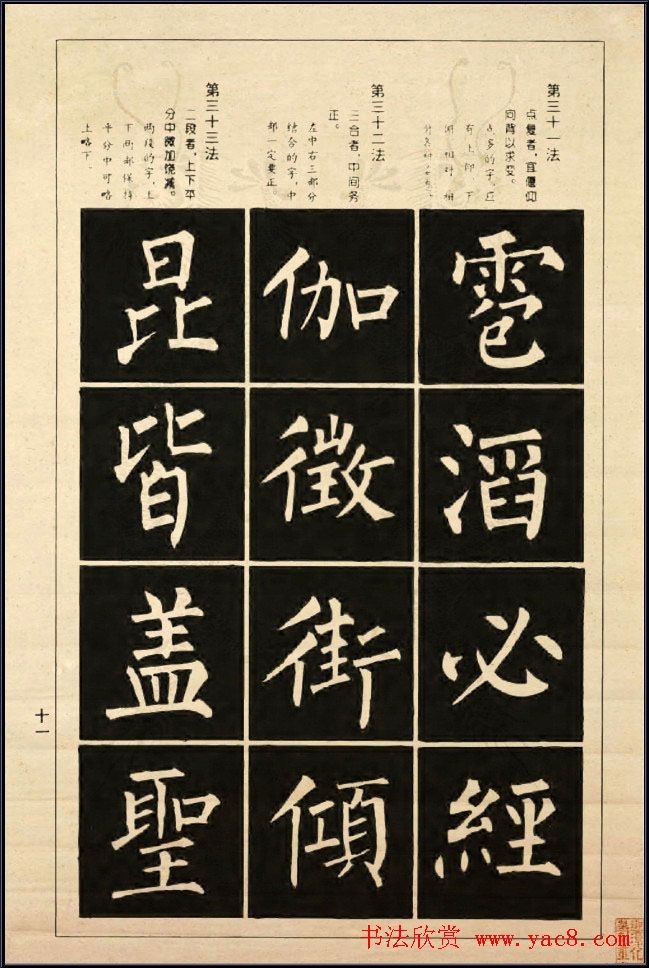 第三十一法
点复者，宜偃仰
向背以求变。
点多的字，应
有上仰、下
俯、相对、相
雹
滔
必
經
第三十二法
三合者，中间务
正。
左中右三部分
结合的字，中
部一定要正。
伽
徵
街
傾
第三十三法
二段者，上下平
分中微加饶减。
两段的字，上
下两部保持
平分中可略
上略下。
昆
皆
盖
聖
十一
书法欣赏 www.yac8.com